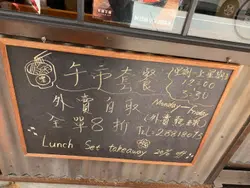 午市套餐 (星期一至星期五
12:00
5:30
外賣自取 Monday-Friday
全單8折 (外賣熱線)
Tel: 2881807
Lunch Set takeaway 20% off